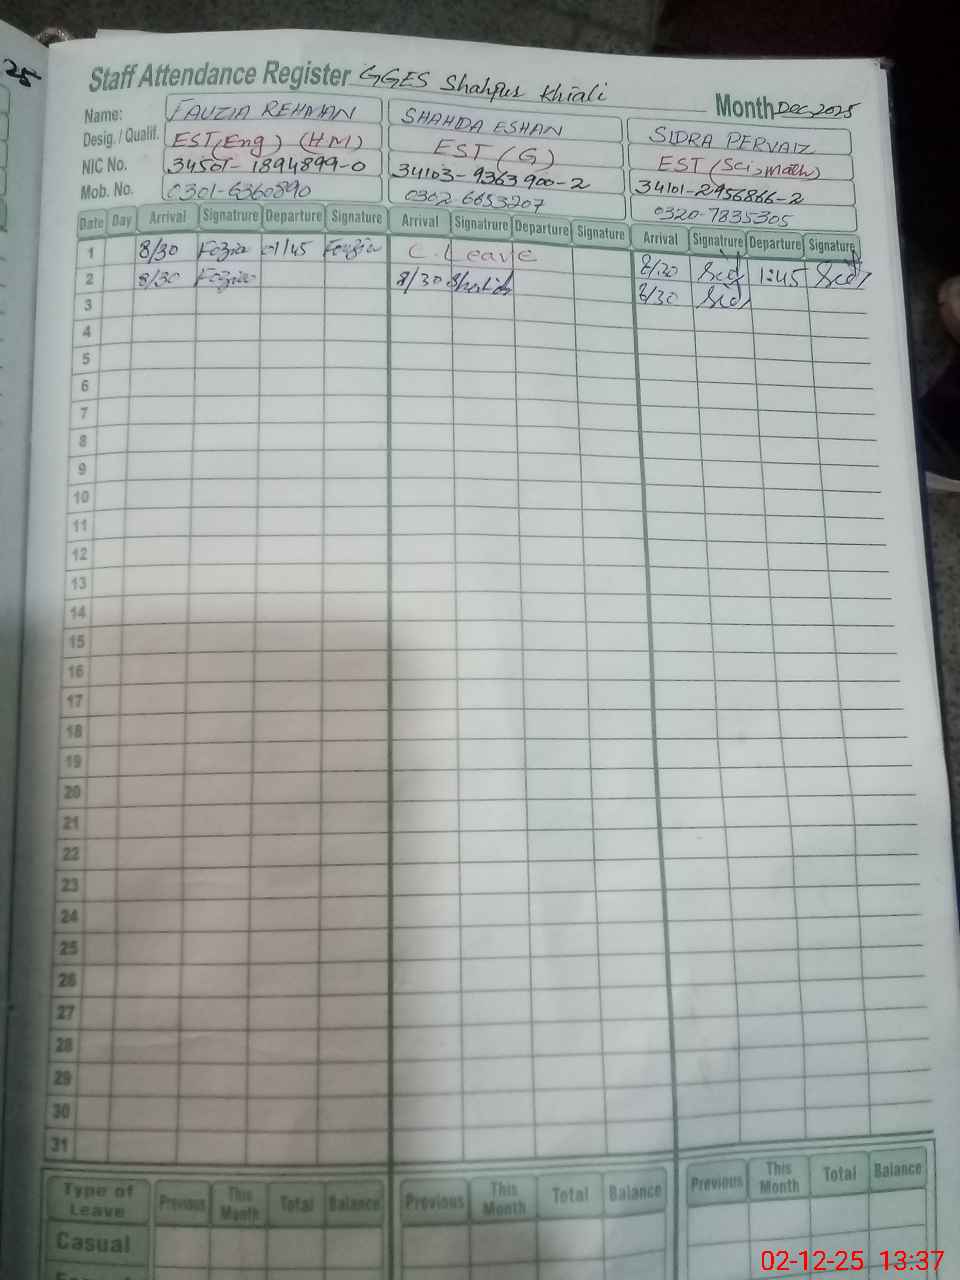 25
Staff Attendance Register GGES Shahpur Khiali Month Dec, 2025
Name: FAUZIA REHMAN SHAHDA ESHAN SIDRA PERVAIZ
Desig. / Qualif. EST(Eng) (HM) EST (G) EST (Sci, math)
NIC No. 34501-1894899-0 34103-9363900-2 34101-2956866-2
Mob. No. 0301-6360890 0302 6653207 0320-7835305
Date Day Arrival Signatrure Departure Signature Arrival Signatrure Departure Signature Arrival Signatrure Departure Signature
1 8/30 Fozia 01/45 Fozia C. Leave 8/30 1:45
2 8/30 Fozia 8/30 8/30
3
4
5
6
7
8
9
10
11
12
13
14
15
16
17
18
19
20
21
22
23
24
25
26
27
28
29
30
31
Type of Leave Previous This Month Total Balance Previous This Month Total Balance Previous This Month Total Balance
Casual
02-12-25 13:37